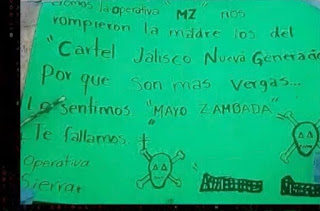 Somos la operativa "MZ" nos
rompieron la madre los del
"Cartel Jalisco Nueva Generación
Por que son mas vergas...
Lo sentimos "MAYO ZAMBADA"
Te fallamos
Operativa
Sierra